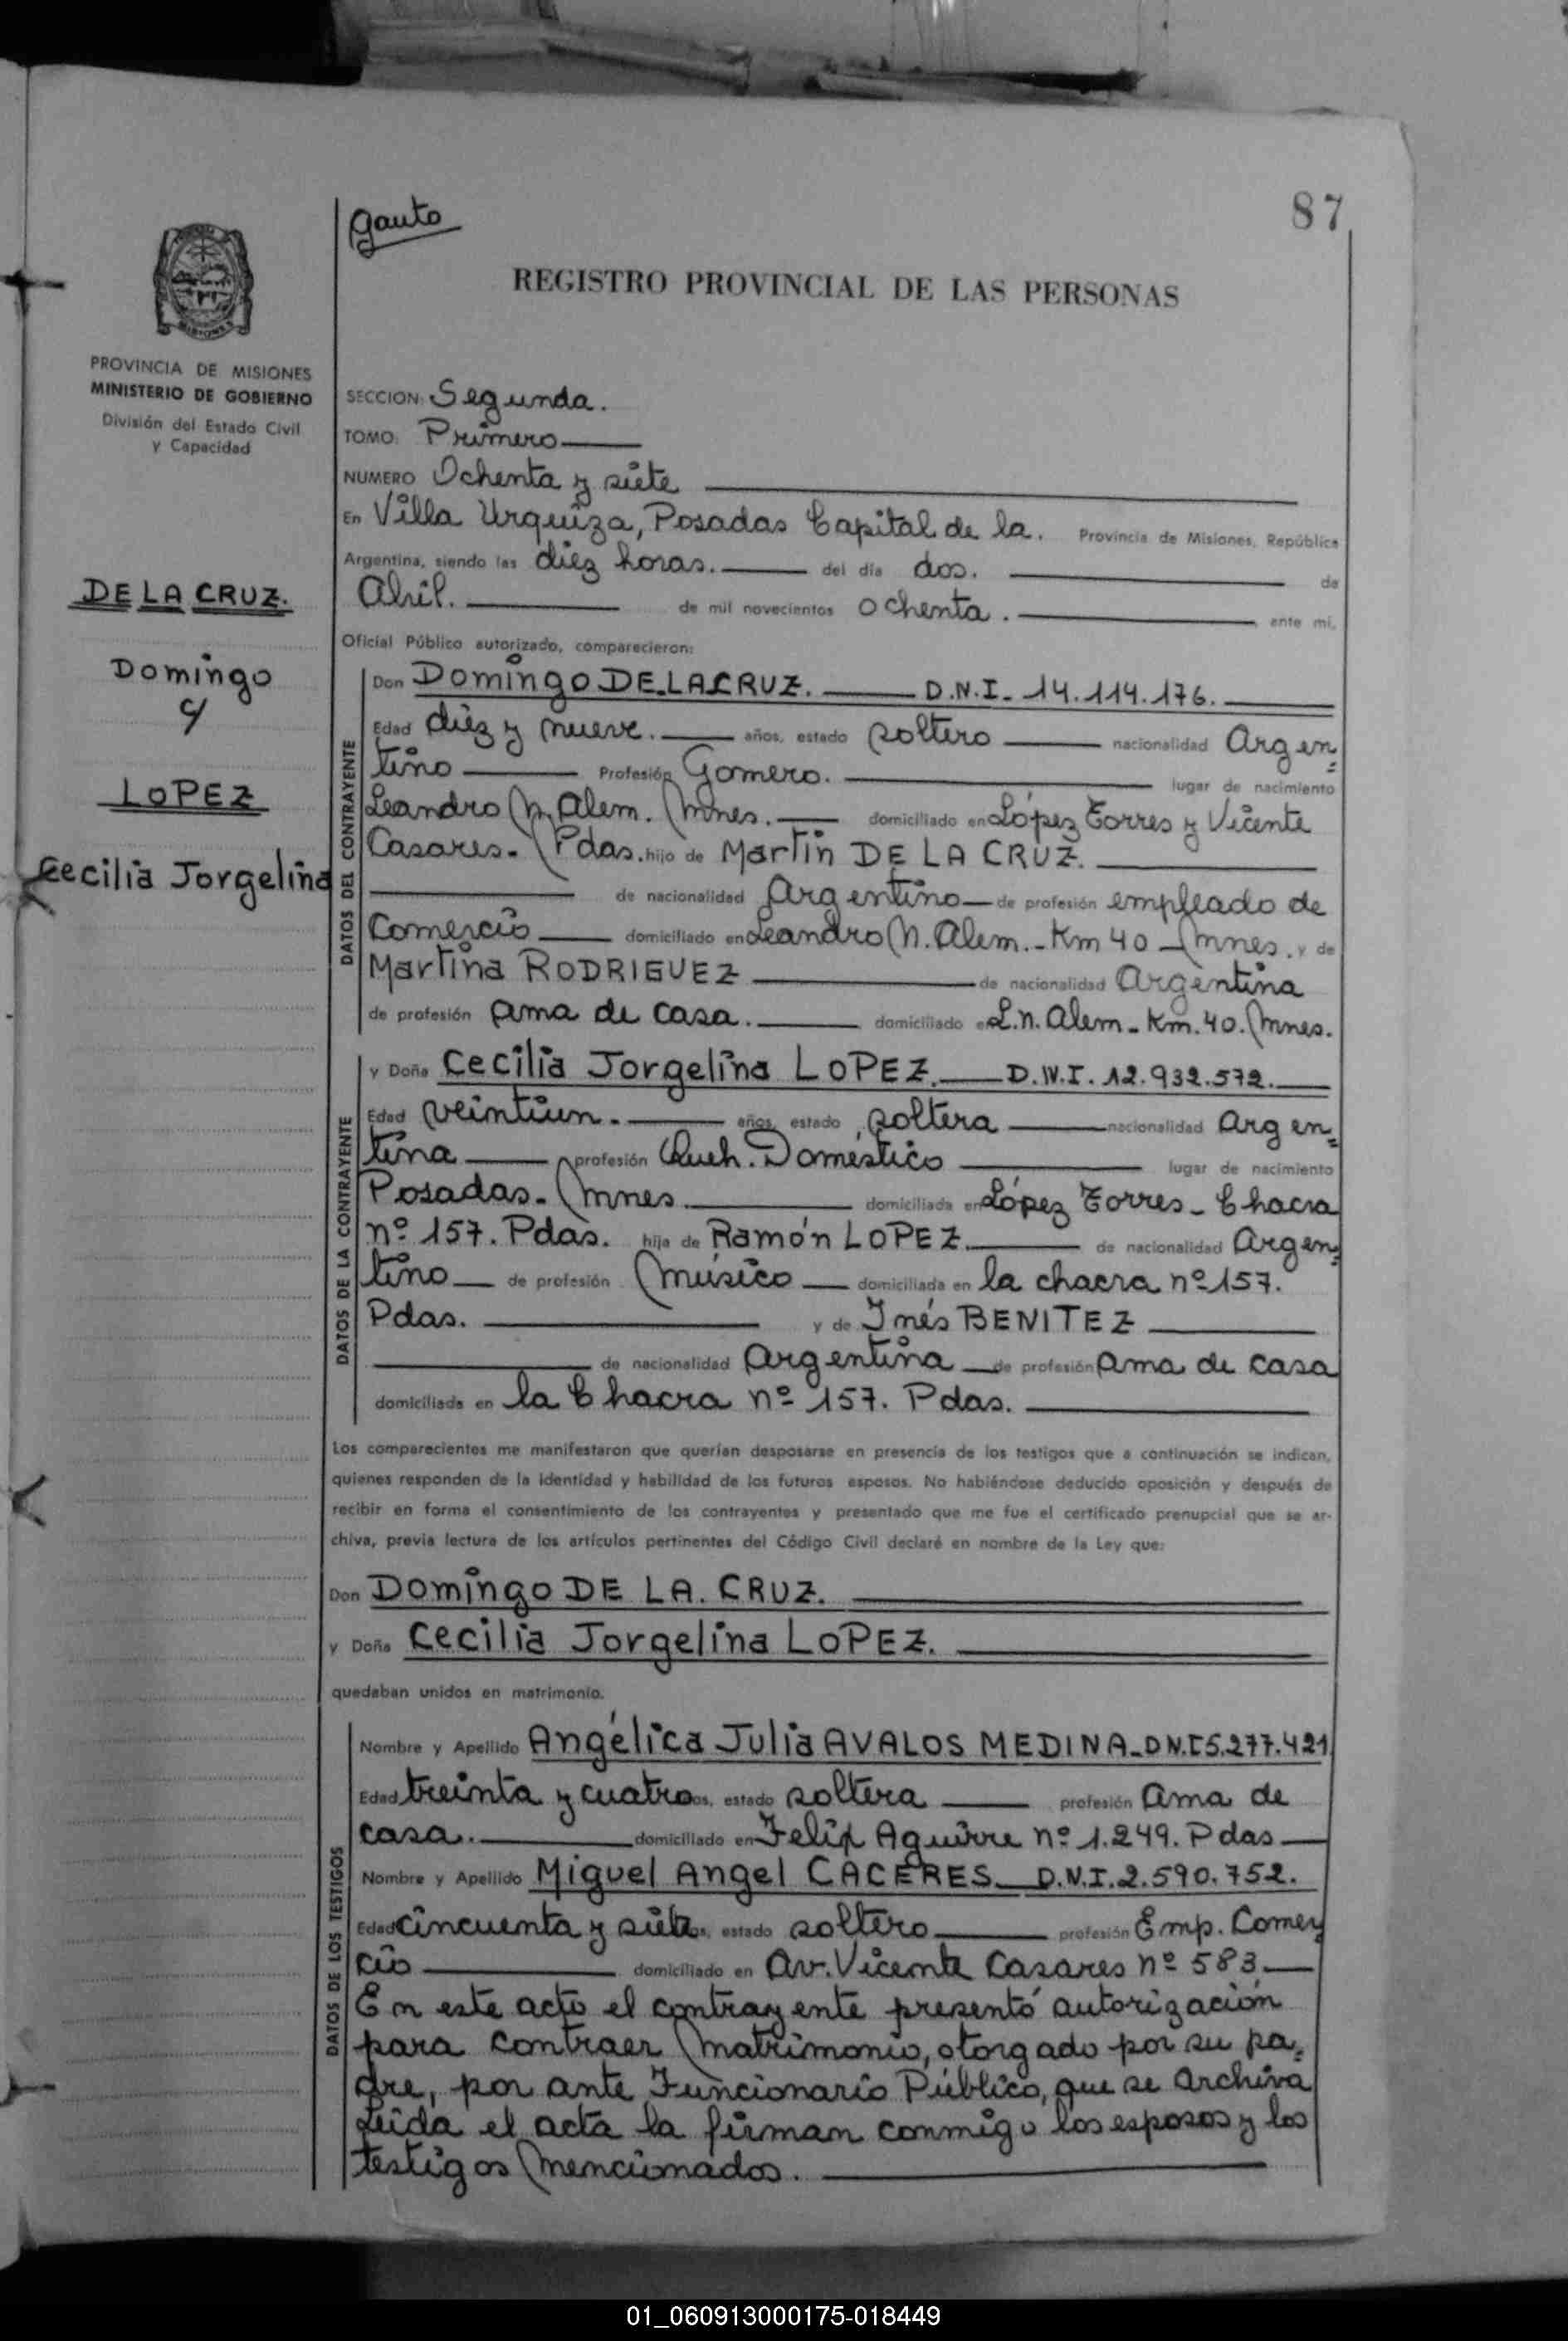 Gauto
87
REGISTRO PROVINCIAL DE LAS PERSONAS
PROVINCIA DE MISIONES
MINISTERIO DE GOBIERNO
División del Estado Civil
y Capacidad
DE LA CRUZ.
Domingo
c/
LOPEZ
Cecilia Jorgelina
SECCION: Segunda.
TOMO: Primero
NUMERO Ochenta y siete
En Villa Urquiza, Posadas Capital de la. Provincia de Misiones, República
Argentina, siendo las diez horas. del día dos. de
Abril. de mil novecientos ochenta. ante mi,
Oficial Público autorizado, comparecieron:
DATOS DEL CONTRAYENTE
Don Domingo DE LA CRUZ. D.N.I. 14.114.176.
Edad diez y nueve. años, estado soltero nacionalidad Argen=
tino Profesión Gomero. lugar de nacimiento
Leandro N. Alem. Mnes. domiciliado en López Torres y Vicente
Casares. Pdas. hijo de Martin DE LA CRUZ.
de nacionalidad Argentino de profesión empleado de
Comercio domiciliado en Leandro N. Alem. - Km 40 - Mnes. y de
Martina RODRIGUEZ de nacionalidad Argentina
de profesión ama de casa. domiciliado en L.N. Alem - Km. 40. Mnes.
DATOS DE LA CONTRAYENTE
y Doña Cecilia Jorgelina LOPEZ. D.N.I. 12.932.572.
Edad veintiun. años, estado soltera nacionalidad Argen=
tina profesión Queh. Doméstico lugar de nacimiento
Posadas. Mnes domiciliada en López Torres - Chacra
nº 157. Pdas. hija de Ramón LOPEZ. de nacionalidad Argen=
tino de profesión músico domiciliada en la chacra nº 157.
Pdas. y de Inés BENITEZ
de nacionalidad Argentina de profesión ama de casa
domiciliada en la Chacra nº 157. Pdas.
Los comparecientes me manifestaron que querían desposarse en presencia de los testigos que a continuación se indican,
quienes responden de la identidad y habilidad de los futuros esposos. No habiéndose deducido oposición y después de
recibir en forma el consentimiento de los contrayentes y presentado que me fue el certificado prenupcial que se ar-
chiva, previa lectura de los artículos pertinentes del Código Civil declaré en nombre de la Ley que:
Don Domingo DE LA. CRUZ.
y Doña Cecilia Jorgelina LOPEZ.
quedaban unidos en matrimonio.
DATOS DE LOS TESTIGOS
Nombre y Apellido Angélica Julia AVALOS MEDINA - D N.I 5.277.421
Edad treinta y cuatro os, estado soltera profesión ama de
casa. domiciliado en Felix Aguirre nº 1.249. Pdas
Nombre y Apellido Miguel Angel CACERES. D.N.I. 2.590.752.
Edad cincuenta y siete os, estado soltero profesión Emp. Comer
cio domiciliado en Av. Vicente Casares nº 583.
En este acto el contrayente presentó autorización
para contraer matrimonio, otorgado por su pa=
dre, por ante Funcionario Público, que se archiva
Leida el acta la firman conmigo los esposos y los
testigos mencionados.
01_060913000175-018449